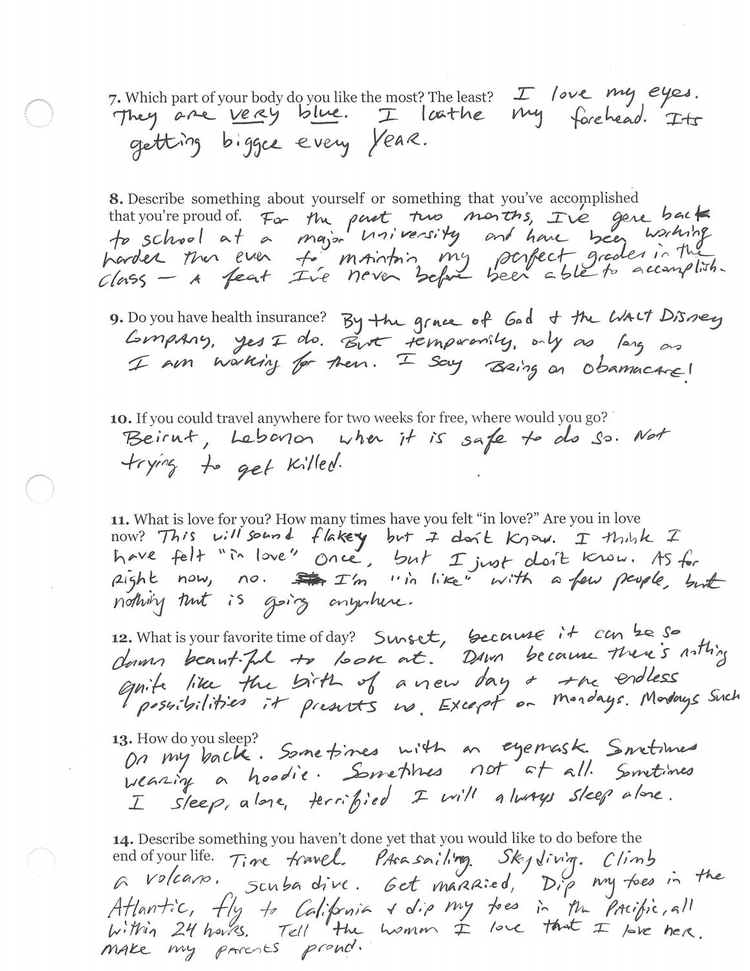 7. Which part of your body do you like the most? The least? I love my eyes.
They are very blue. I loathe my forehead. Its
getting bigger every year.
8. Describe something about yourself or something that you've accomplished
that you're proud of. For the past two months, I've gone back
to school at a major university and have been working
harder then ever to maintain my perfect grades in the
class – A feat I've never before been able to accomplish.
9. Do you have health insurance? By the grace of God & the WALT Disney
Company, yes I do. But temporarily, only as long as
I am working for them. I say BRing on ObamacARE!
10. If you could travel anywhere for two weeks for free, where would you go?
Beirut, Lebanon when it is safe to do so. Not
trying to get killed.
11. What is love for you? How many times have you felt "in love?" Are you in love
now? This will sound flakey but I don't know. I think I
have felt "in love" once, but I just don't know. As for
Right now, no. I'm "in like" with a few people, but
nothing that is going anywhere.
12. What is your favorite time of day? Sunset, because it can be so
damn beautiful to look at. Dawn because there's nothing
quite like the birth of a new day & the endless
possibilities it presents us. Except on Mondays. Mondays Suck
13. How do you sleep?
On my back. Sometimes with an eyemask. Sometimes
wearing a hoodie. Sometimes not at all. Sometimes
I sleep, alone, terrified I will always sleep alone.
14. Describe something you haven't done yet that you would like to do before the
end of your life. Time travel. Parasailing. Skydiving. Climb
a volcano. Scuba dive. Get married, Dip my toes in the
Atlantic, fly to California & dip my toes in the Pacific, all
within 24 hours. Tell the woman I love that I love her.
Make my parents proud.